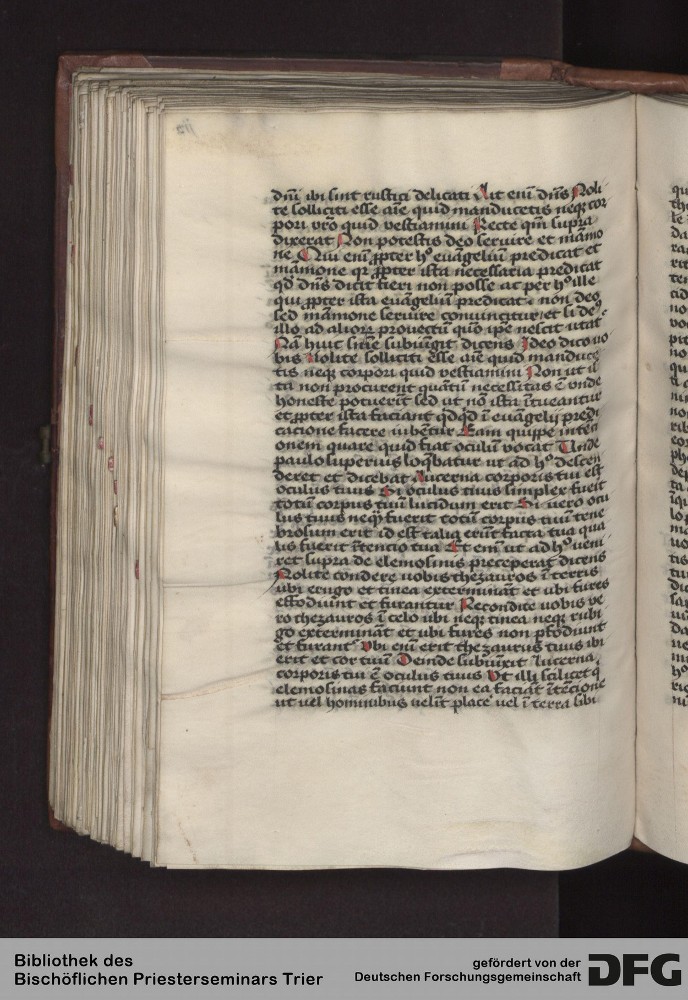 dn̄i ibi sint rustici delicati Ait eni͂ dn̄s Noli
te solliciti esse aīe quid manducetis neqꝫ cor
pori vr̄o quid vestiamini Recte qm̄ supra
dixerat Non potestis deo seruire et māmo
ne Qui eni͂ ꝓpter hͦ euāgeliū predicat et
māmone qr ꝓpter ista necessaria predicat
qd̄ dn̄s dicit fieri non posse ac per hͦ ille
qui ꝓpter ista euāgeliū predicat non deo
sed māmone seruire conuincitur et si de
illo ad alioꝝ prouectū quō ip̄e nescit utat᷑
Nā huic sn̄ie subiūgit dicens Ideo dico uo
bis Nolite solliciti esse aīe quid manduce
tis neqꝫ corpori quid vestiamini Non ut i
ta non procurent quātū necessitas ē vnde
honeste potuerīt sed ut nō ista ītueantur
et ꝓpter ista faciant qdqd ī euāgelij predi
cacione facere iubētur Eam quippe intēti
onem quare quid fiat oculū vocat Unde
paulo superius loq̄batur ut ad hͦ descen
deret et dicebat Lucerna corporis tui est
oculus tuus Si oculus tuus simplex fuerit
totū corpus tuū lucidum erit Si uero ocu
lus tuus neqꝫ fuerit totū corpus tuū tene
brosum erit id est talia erūt facta tua qua
lis fuerit ītencio tua Et eni͂ ut ad hͦ veni
ret supra de elemosinis preceperat dicens
Nolite condere uobis thezauros ī terris
ubi erugo et tinea exterminat et ubi fures
effodiunt et furantur Recondite uobis ve
ro thezauros ī celo ubi neqꝫ tinea neqꝫ rubi
go exterminat et ubi fures non ꝑfodiunt
et furant᷑ Vbi eni͂ erit thezaurus tuus ibi
erit et cor tuū Deinde subiūxit Lucerna
corporis tui ē oculus tuus Vt illi scilicet q̄
elemosinas faciunt non ea faciāt ītēcione
ut uel hominibus uelīt place᷑ uel ī terra sibi
Bibliothek des
Bischöflichen Priesterseminars Trier
gefördert von der
Deutschen Forschungsgemeinschaft
DFG